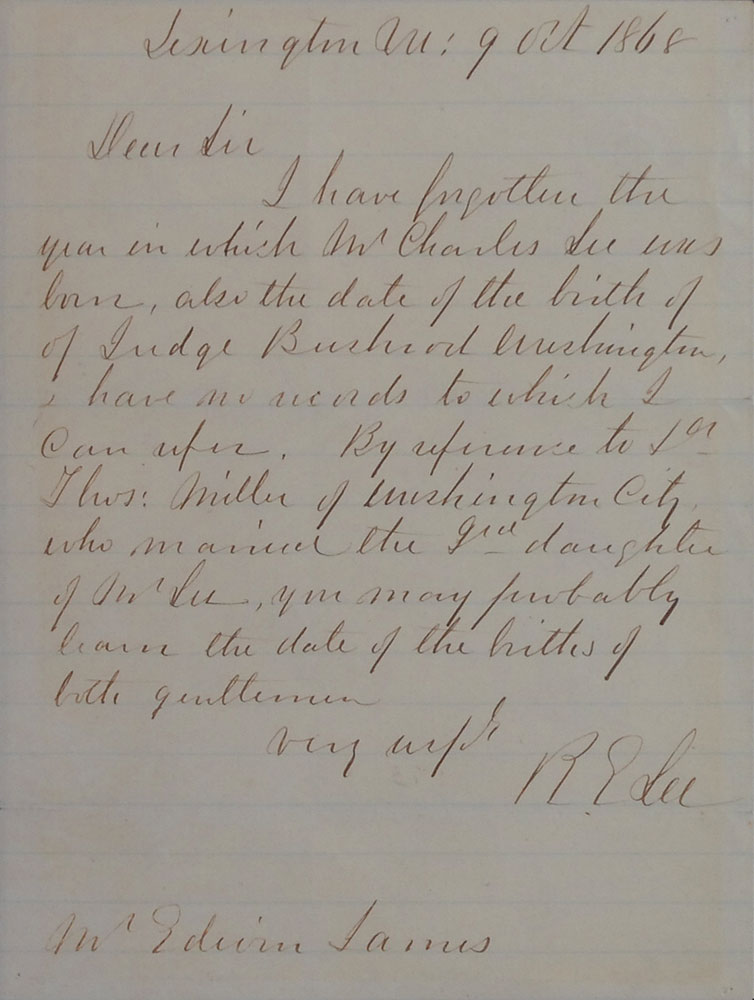 Lexington Va: 9 Oct 1868
Dear Sir
I have forgotten the
year in which Mr Charles Lee was
born, also the date of the birth of
of Judge Bushrod Washington,
& have no records to which I
can refer. By reference to Dr
Thos: Miller of Washington City,
who married the 2nd daughter
of Mr Lee, you may probably
learn the date of the births of
both gentlemen
Very respy
R. E Lee
Mr Edwin James